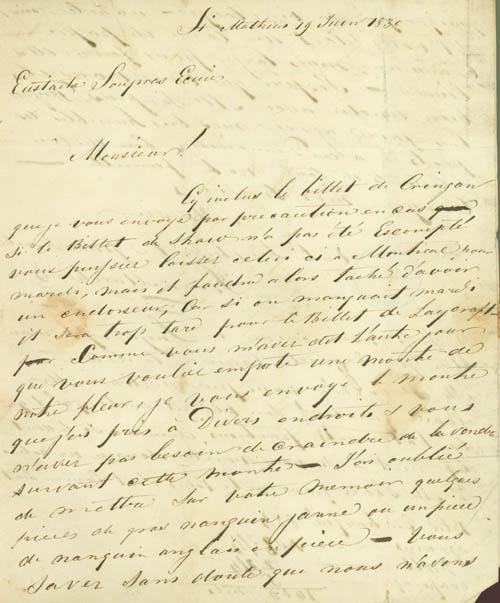 St Mathias 19 Juin 1830
Eustache Soupras Ecuier
Monsieur!
Cy inclus le billet de Gringan
que je vous envoye par precaution en cas que
Si le Billet de Shaw n'a pas été Escompté
vous pussiez laisser celui ci à Montreal pour
mardi, mais il faudra alors tacher d'avoir
un endosseur, Car si on manquait mardi
il sera trop tard pour le Billet de Laycraft
Comme vous m'avez dit l'autre jour
que vous vouliez emporté une montre de
notre fleur, je vous envoye la montre
que j'ai pris à Divers endroits & vous
n'avez pas besoin de craindre de la vendre
suivant cette montre — J'ai oublié
de mettre Sur votre memoir quelques
pieces de gros nanquin jaune ou un piece
de nanquin anglais en piece — Vous
Savez sans doute que nous n'avons